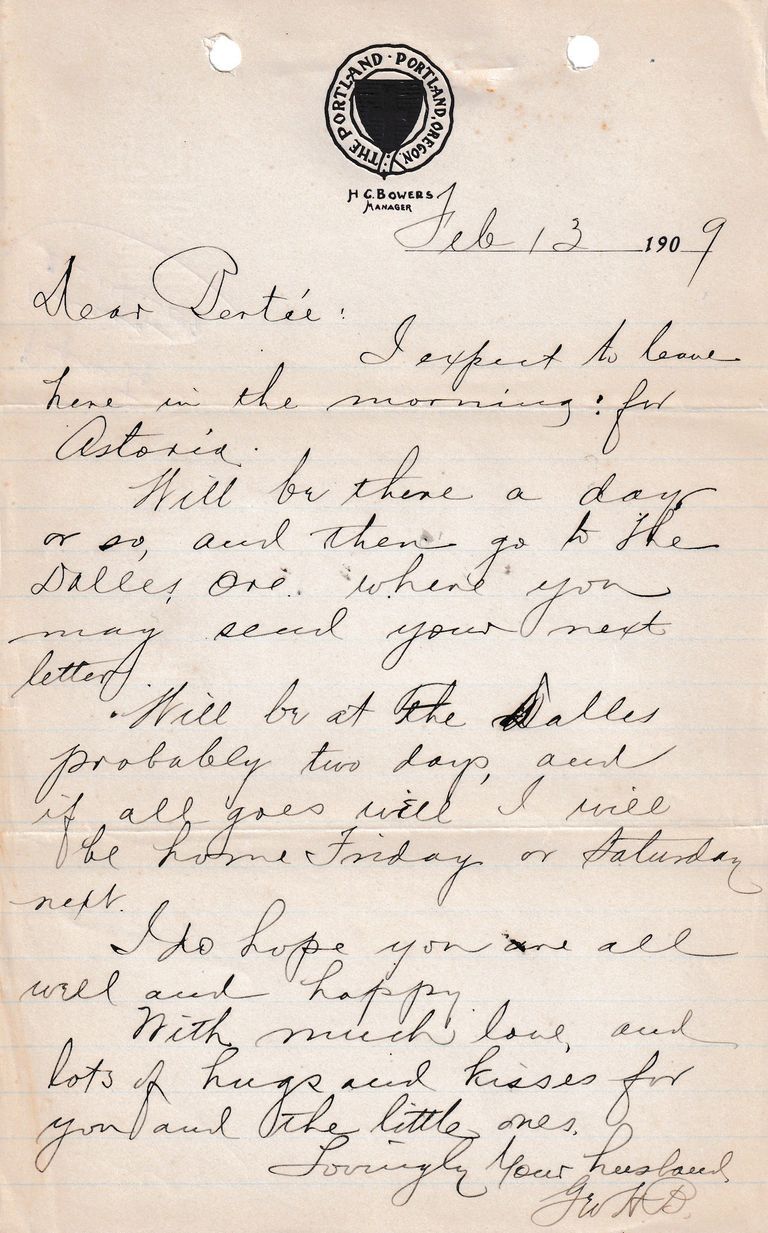 THE PORTLAND · PORTLAND, OREGON.
H C. BOWERS
MANAGER
Feb 13 1909
Dear Pertie:
I expect to leave
here in the morning: for
Astoria.
Will be there a day
or so, and then go to The
Dalles, Ore. where you
may send your next
letter.
Will be at The Dalles
probably two days, and
if all goes well I will
be home Friday or Saturday
next.
I do hope you are all
well and happy
With much love, and
lots of hugs and kisses for
you and the little ones.
Lovingly Your husband,
Geo H. B.